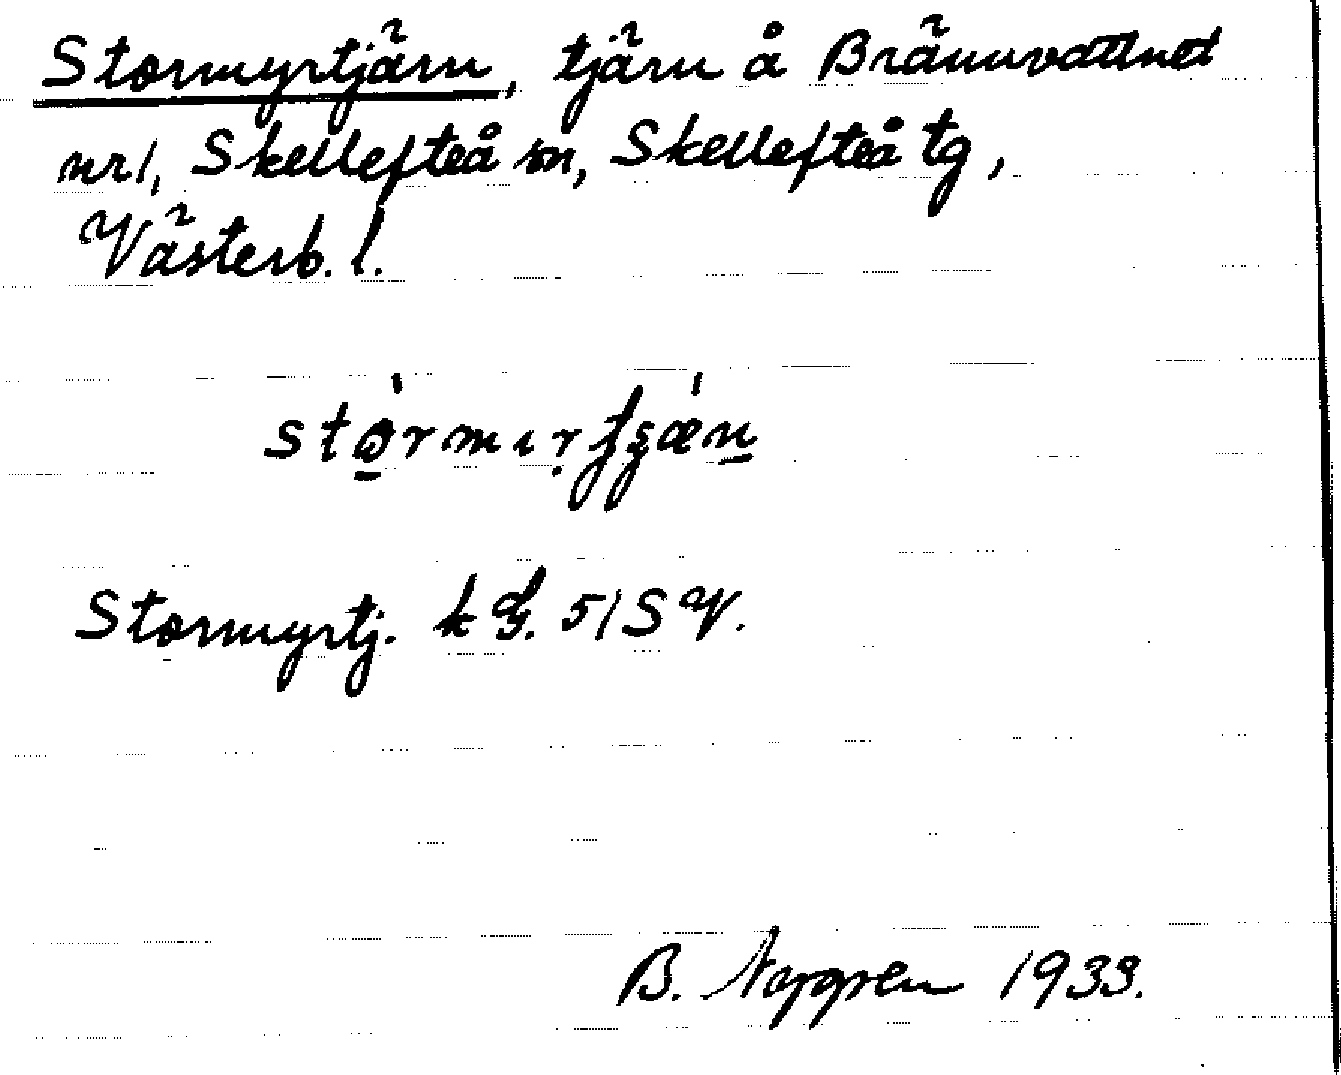 Stormyrtjärn, tjärn å Brännvattnet
nr 1, Skellefteå sn, Skellefteå tg,
Västerb. l.
Stormyrtj. k G. 51 SV.
B. 1933.